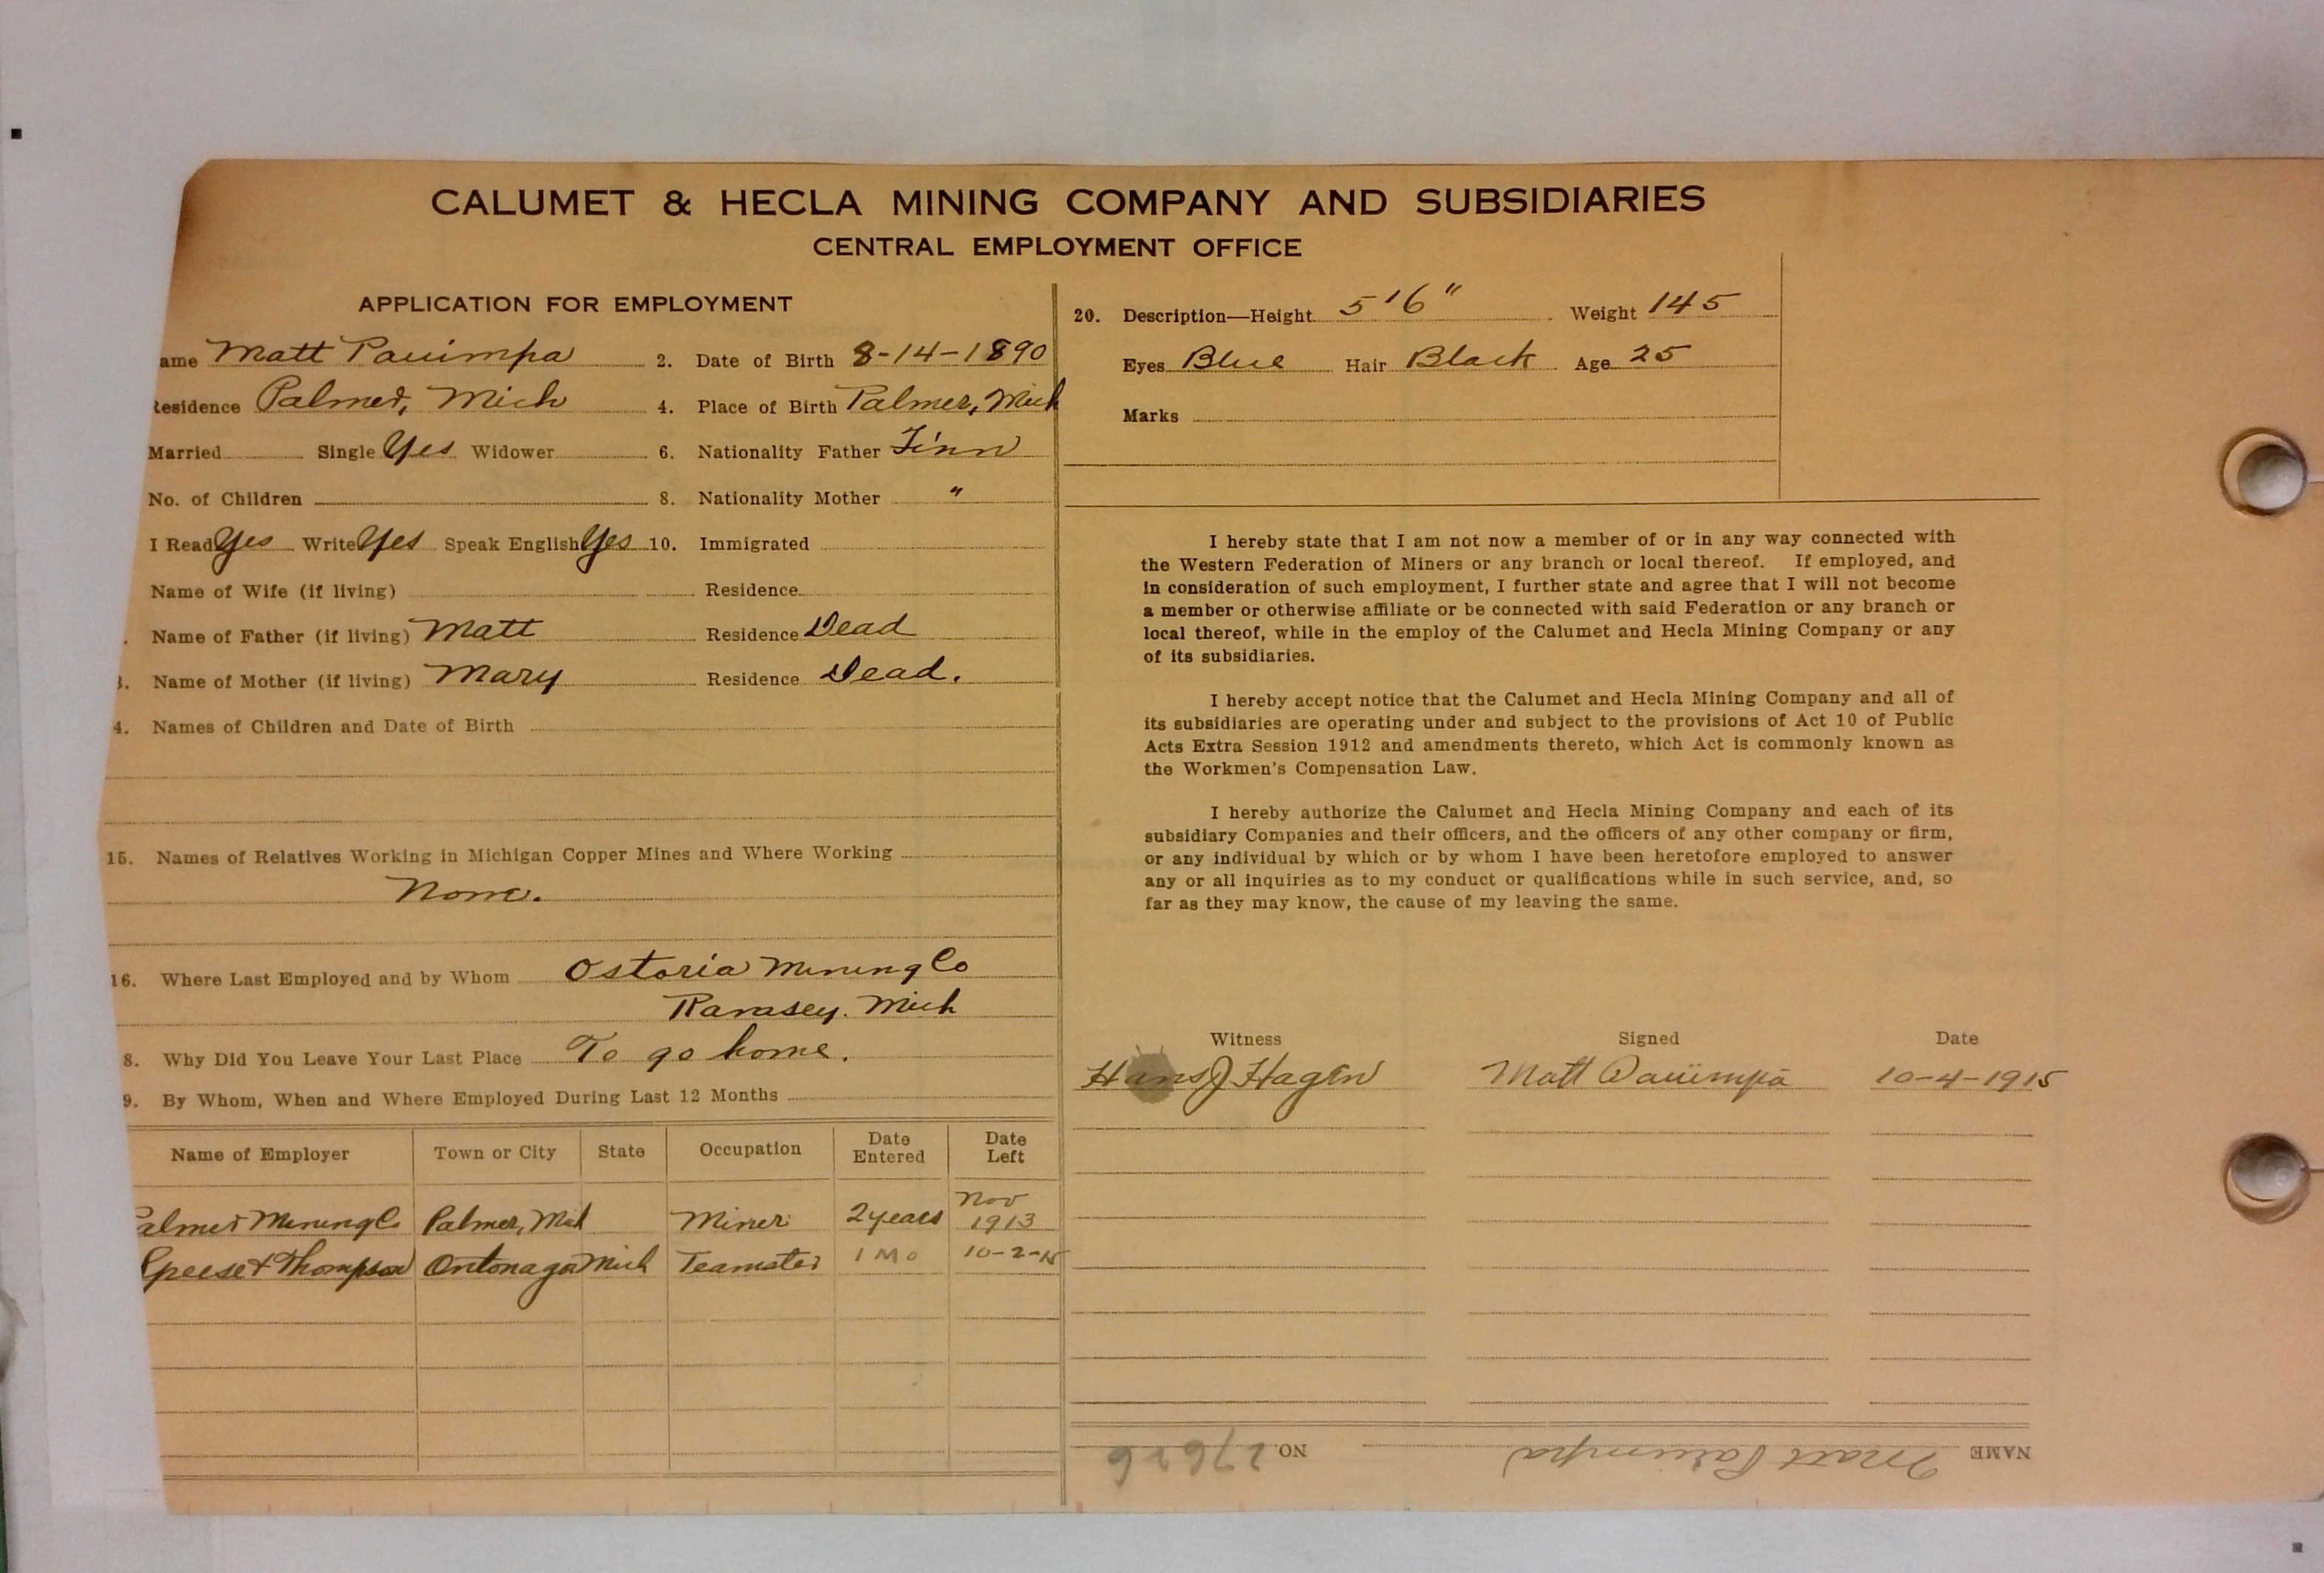 CALUMET & HECLA MINING COMPANY AND SUBSIDIARIES
CENTRAL EMPLOYMENT OFFICE
APPLICATION FOR EMPLOYMENT
ame Matt Pauimpa 2. Date of Birth 8-14-1890
Residence Palmer, Mich 4. Place of Birth Palmer, Mich
Married Single Yes Widower 6. Nationality Father Finn
No. of Children 8. Nationality Mother "
I Read Yes Write Yes Speak English Yes 10. Immigrated
Name of Wife (if living) Residence
. Name of Father (if living) Matt Residence Dead
3. Name of Mother (if living) Mary Residence Dead.
4. Names of Children and Date of Birth
15. Names of Relatives Working in Michigan Copper Mines and Where Working
None.
16. Where Last Employed and by Whom Ostoria Mining Co
Ramsey. Mich
8. Why Did You Leave Your Last Place To go home.
9. By Whom, When and Where Employed During Last 12 Months
Name of Employer Town or City State Occupation Date Entered Date Left
Palmer Mining Co Palmer, Mich Miner 2 years Nov 1913
& Thompson Ontonagon Mich Teamster 1 Mo 10-2-15
20. Description—Height 5'6" Weight 145
Eyes Blue Hair Black Age 25
Marks
I hereby state that I am not now a member of or in any way connected with
the Western Federation of Miners or any branch or local thereof. If employed, and
in consideration of such employment, I further state and agree that I will not become
a member or otherwise affiliate or be connected with said Federation or any branch or
local thereof, while in the employ of the Calumet and Hecla Mining Company or any
of its subsidiaries.
I hereby accept notice that the Calumet and Hecla Mining Company and all of
its subsidiaries are operating under and subject to the provisions of Act 10 of Public
Acts Extra Session 1912 and amendments thereto, which Act is commonly known as
the Workmen's Compensation Law.
I hereby authorize the Calumet and Hecla Mining Company and each of its
subsidiary Companies and their officers, and the officers of any other company or firm,
or any individual by which or by whom I have been heretofore employed to answer
any or all inquiries as to my conduct or qualifications while in such service, and, so
far as they may know, the cause of my leaving the same.
Witness Signed Date
Hans J Hagen Matt Pauimpa 10-4-1915
NAME Matt Pauimpa NO. 27626